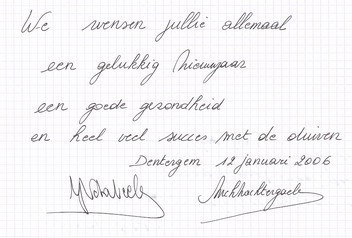 We wensen jullie allemaal
een gelukkig nieuwjaar
een goede gezondheid
en heel veel succes met de duiven
Dentergem 12 januari 2006